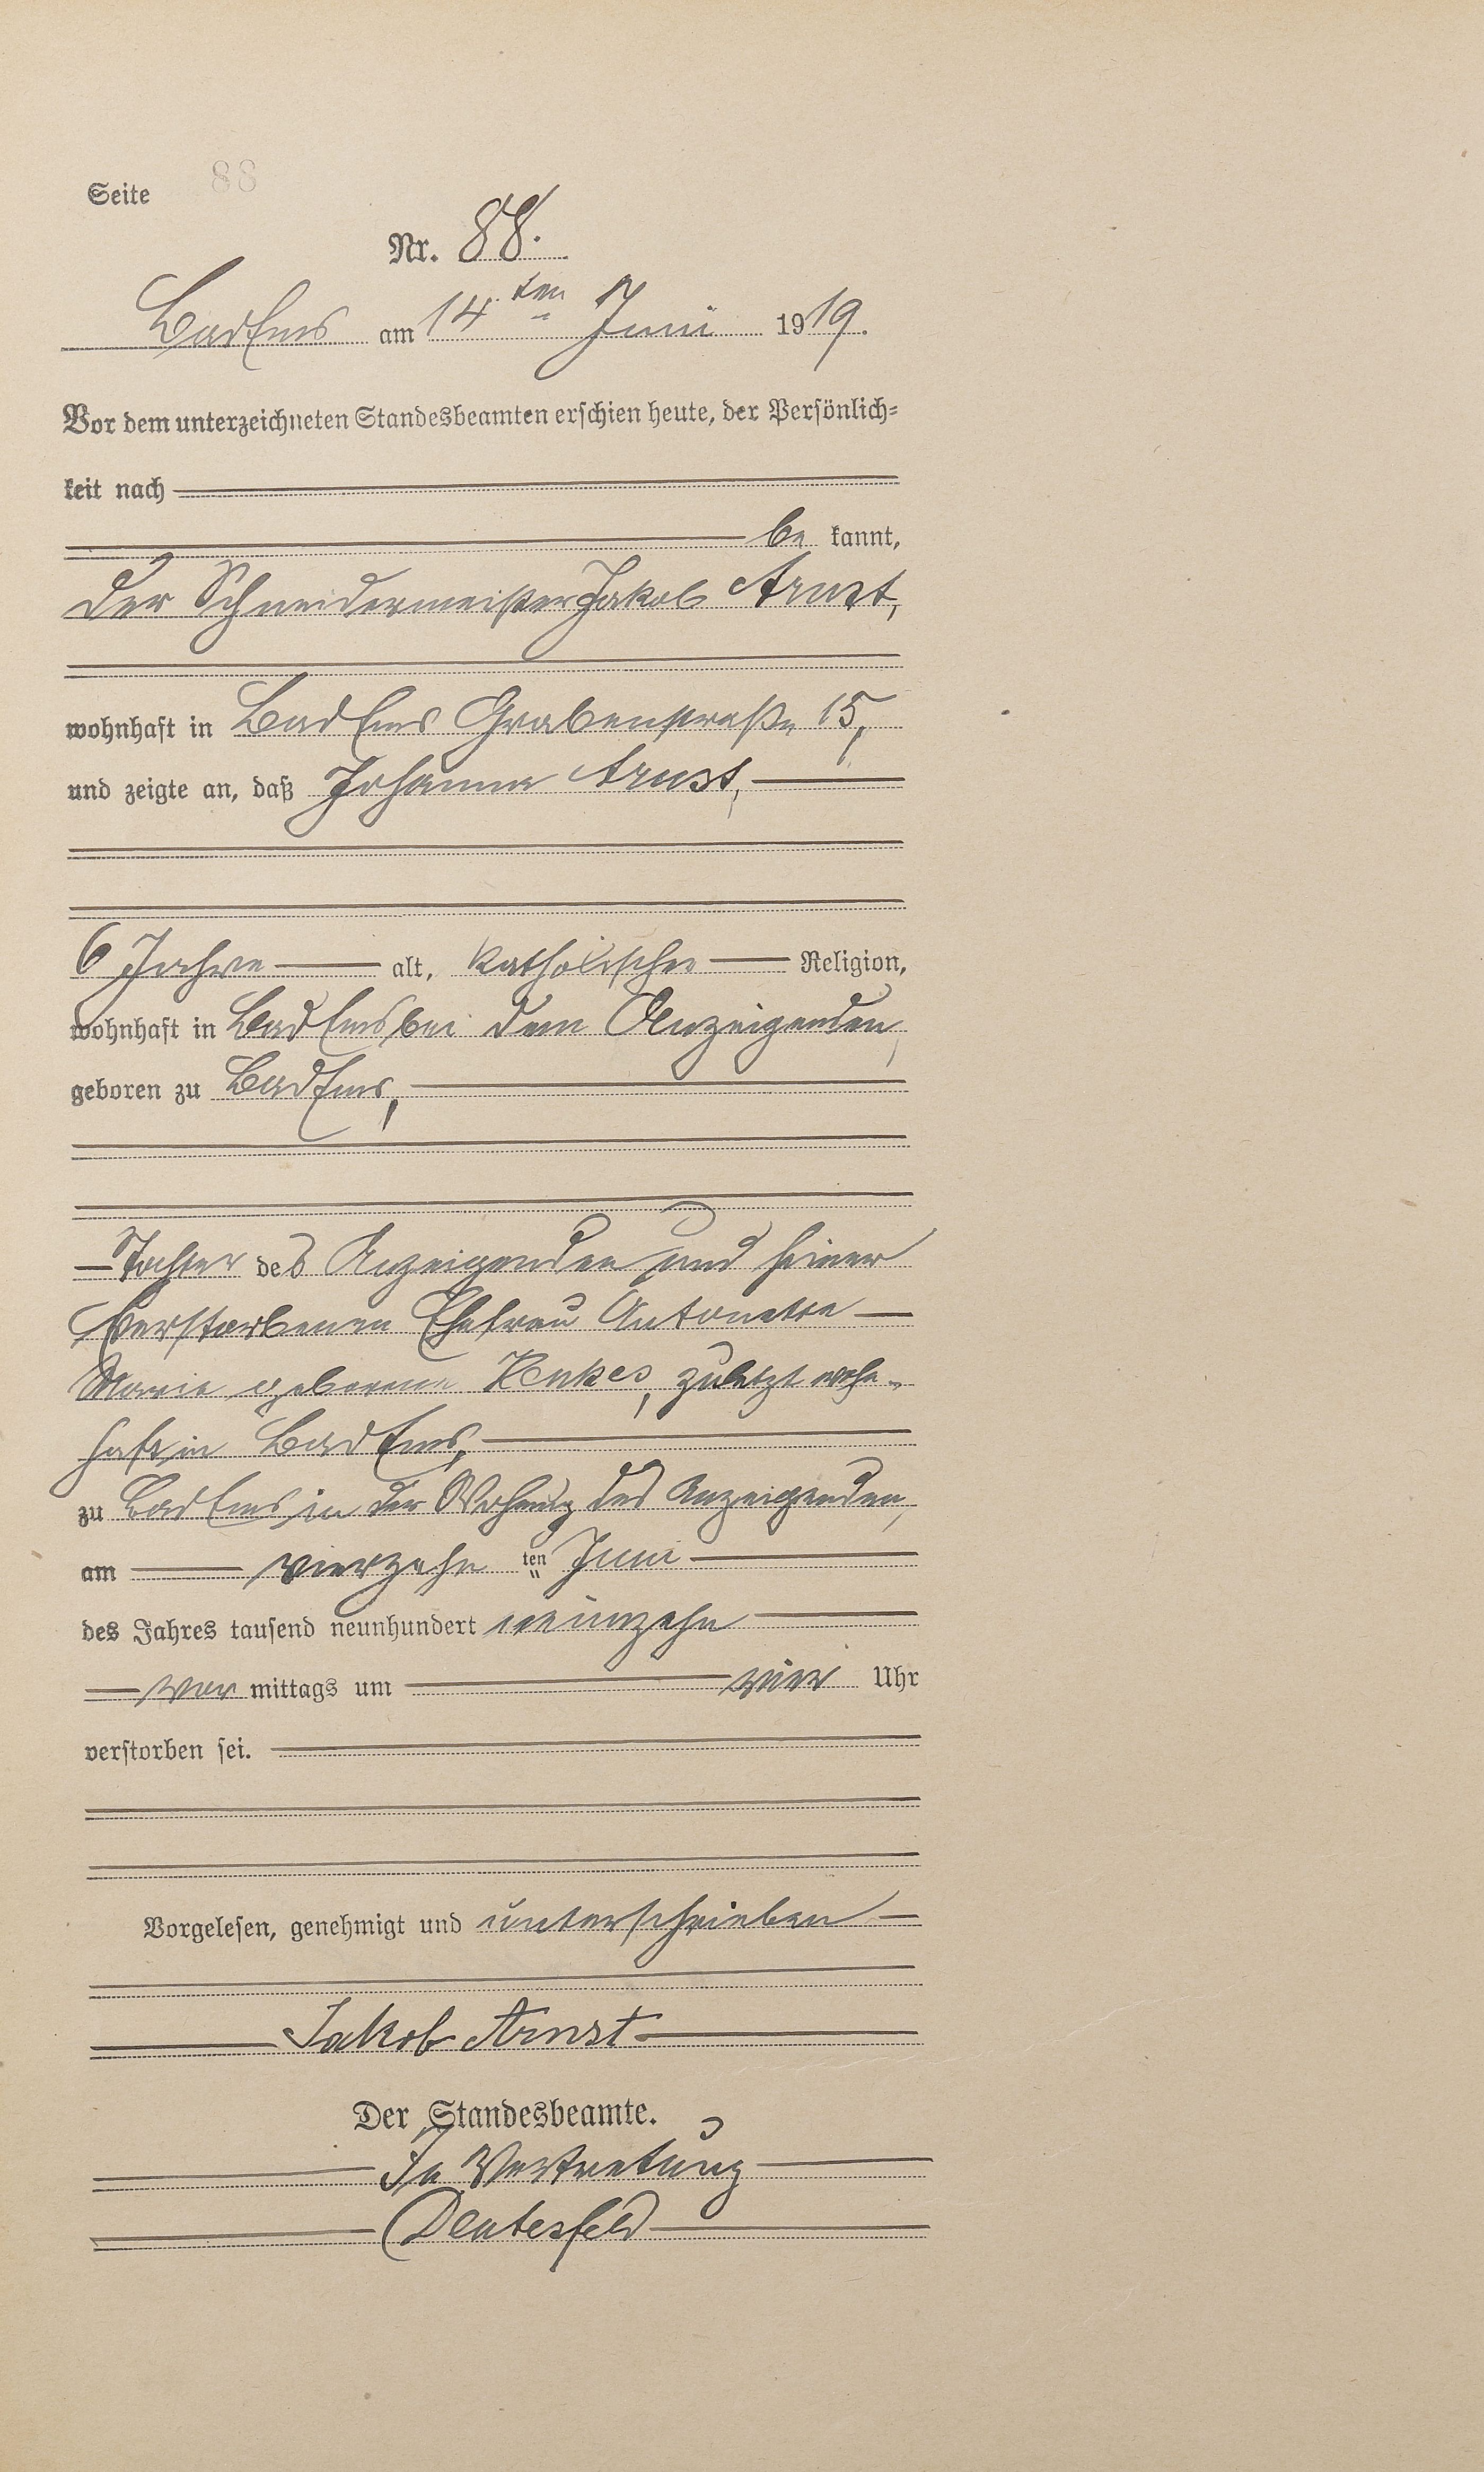 Seite 88
Nr. 88.
Bad Ems am 14ten Juni 1919.
Vor dem unterzeichneten Standesbeamten erschien heute, der Persönlich-
keit nach
be kannt,
der Schneidermeister Jakob Arnst,
wohnhaft in Bad Ems Grabenstraße 15,
und zeigte an, daß Johanna Arnst,
6 Jahre alt, katholischer Religion,
wohnhaft in Bad Ems bei dem Anzeigenden,
geboren zu Bad Ems,
Tochter des Anzeigenden und seiner
verstorbenen Ehefrau Antonette
Marie geborene, zuletzt wohn-
haft in Bad Ems,
zu Bad Ems in der Wohnung des Anzeigenden,
am vierzehnten Juni
des Jahres tausend neunhundert neunzehn
vor mittags um vier Uhr
verstorben sei.
Vorgelesen, genehmigt und unterschrieben
Jakob Arnst
Der Standesbeamte.
In Vertretung